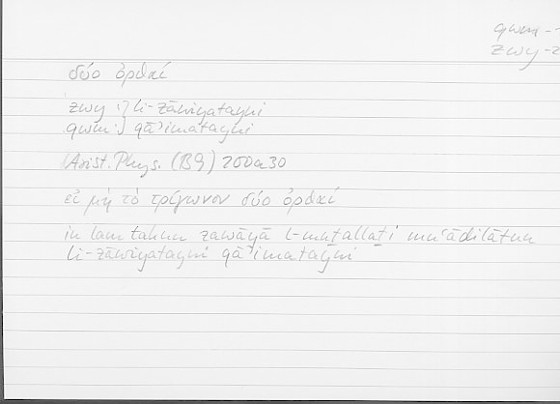 qwm -
zwy -2
δύο ὀρθαί
zwy :} li-zāwiyatayni
qwm :} qāʾimatayni
Arist. Phys. (B9) 200a30
εἰ μὴ τὸ τρίγωνον δύο ὀρθαί
in lam takun zawāyā l-muṯallaṯi muʿādilatun
li-zāwiyatayni qāʾimatayni